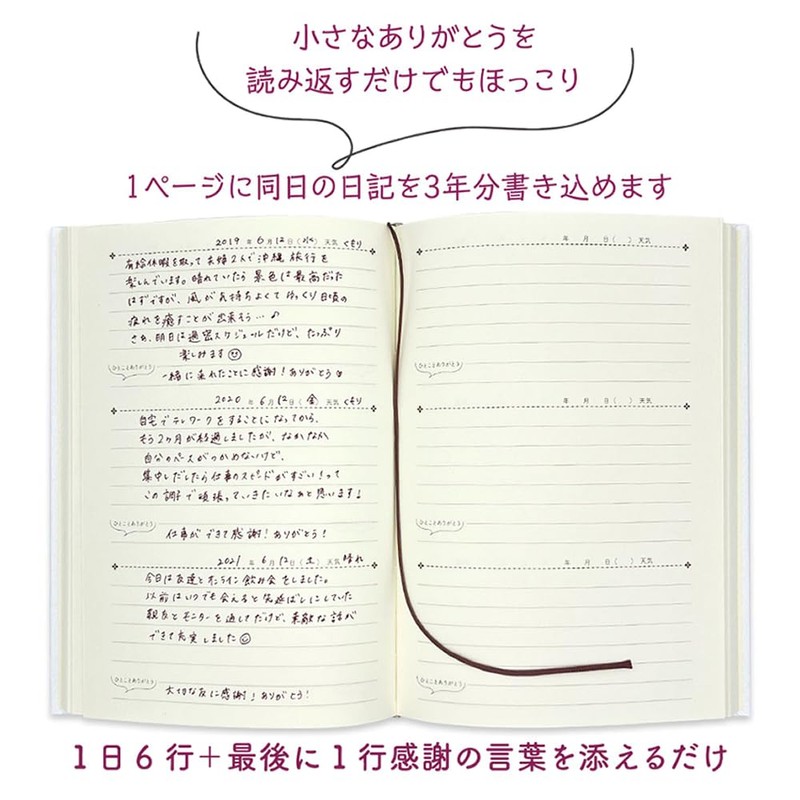 小さなありがとうを
読み返すだけでもほっこり
1ページに同日の日記を3年分書き込めます
2019 年 6 月 12 日 (水) 天気 くもり
有給休暇を取って夫婦2人で沖縄旅行を
楽しんでいます。晴れていたら景色は最高だった
はずですが、風が気持ちよくてゆっくり日頃の
疲れを癒すことが出来そう…♪
さぁ、明日は過密スケジュールだけど、たっぷり
楽しみます
ひとことありがとう
一緒に来れたことに感謝!ありがとう
2020 年 6 月 12 日 (金) 天気 くもり
自宅でテレワークをすることになってから、
もう2ヶ月が経過しましたが、なかなか
自分のペースがつかめないけど、
集中しだしたら仕事のスピードがすごい!って
この調子で頑張っていきたいなぁと思います!
ひとことありがとう
仕事ができて感謝!ありがとう!
2021 年 6 月 12 日 (土) 天気 晴れ
今日は友達とオンライン飲み会をしました。
以前はいつでも会えると先延ばしにしていた
親友とモニターを通してだけど、素敵な話が
できて充実しました
ひとことありがとう
大切な友に感謝!ありがとう!
年 月 日( ) 天気
ひとことありがとう
年 月 日( ) 天気
ひとことありがとう
年 月 日( ) 天気
ひとことありがとう
1日6行+最後に1行感謝の言葉を添えるだけ